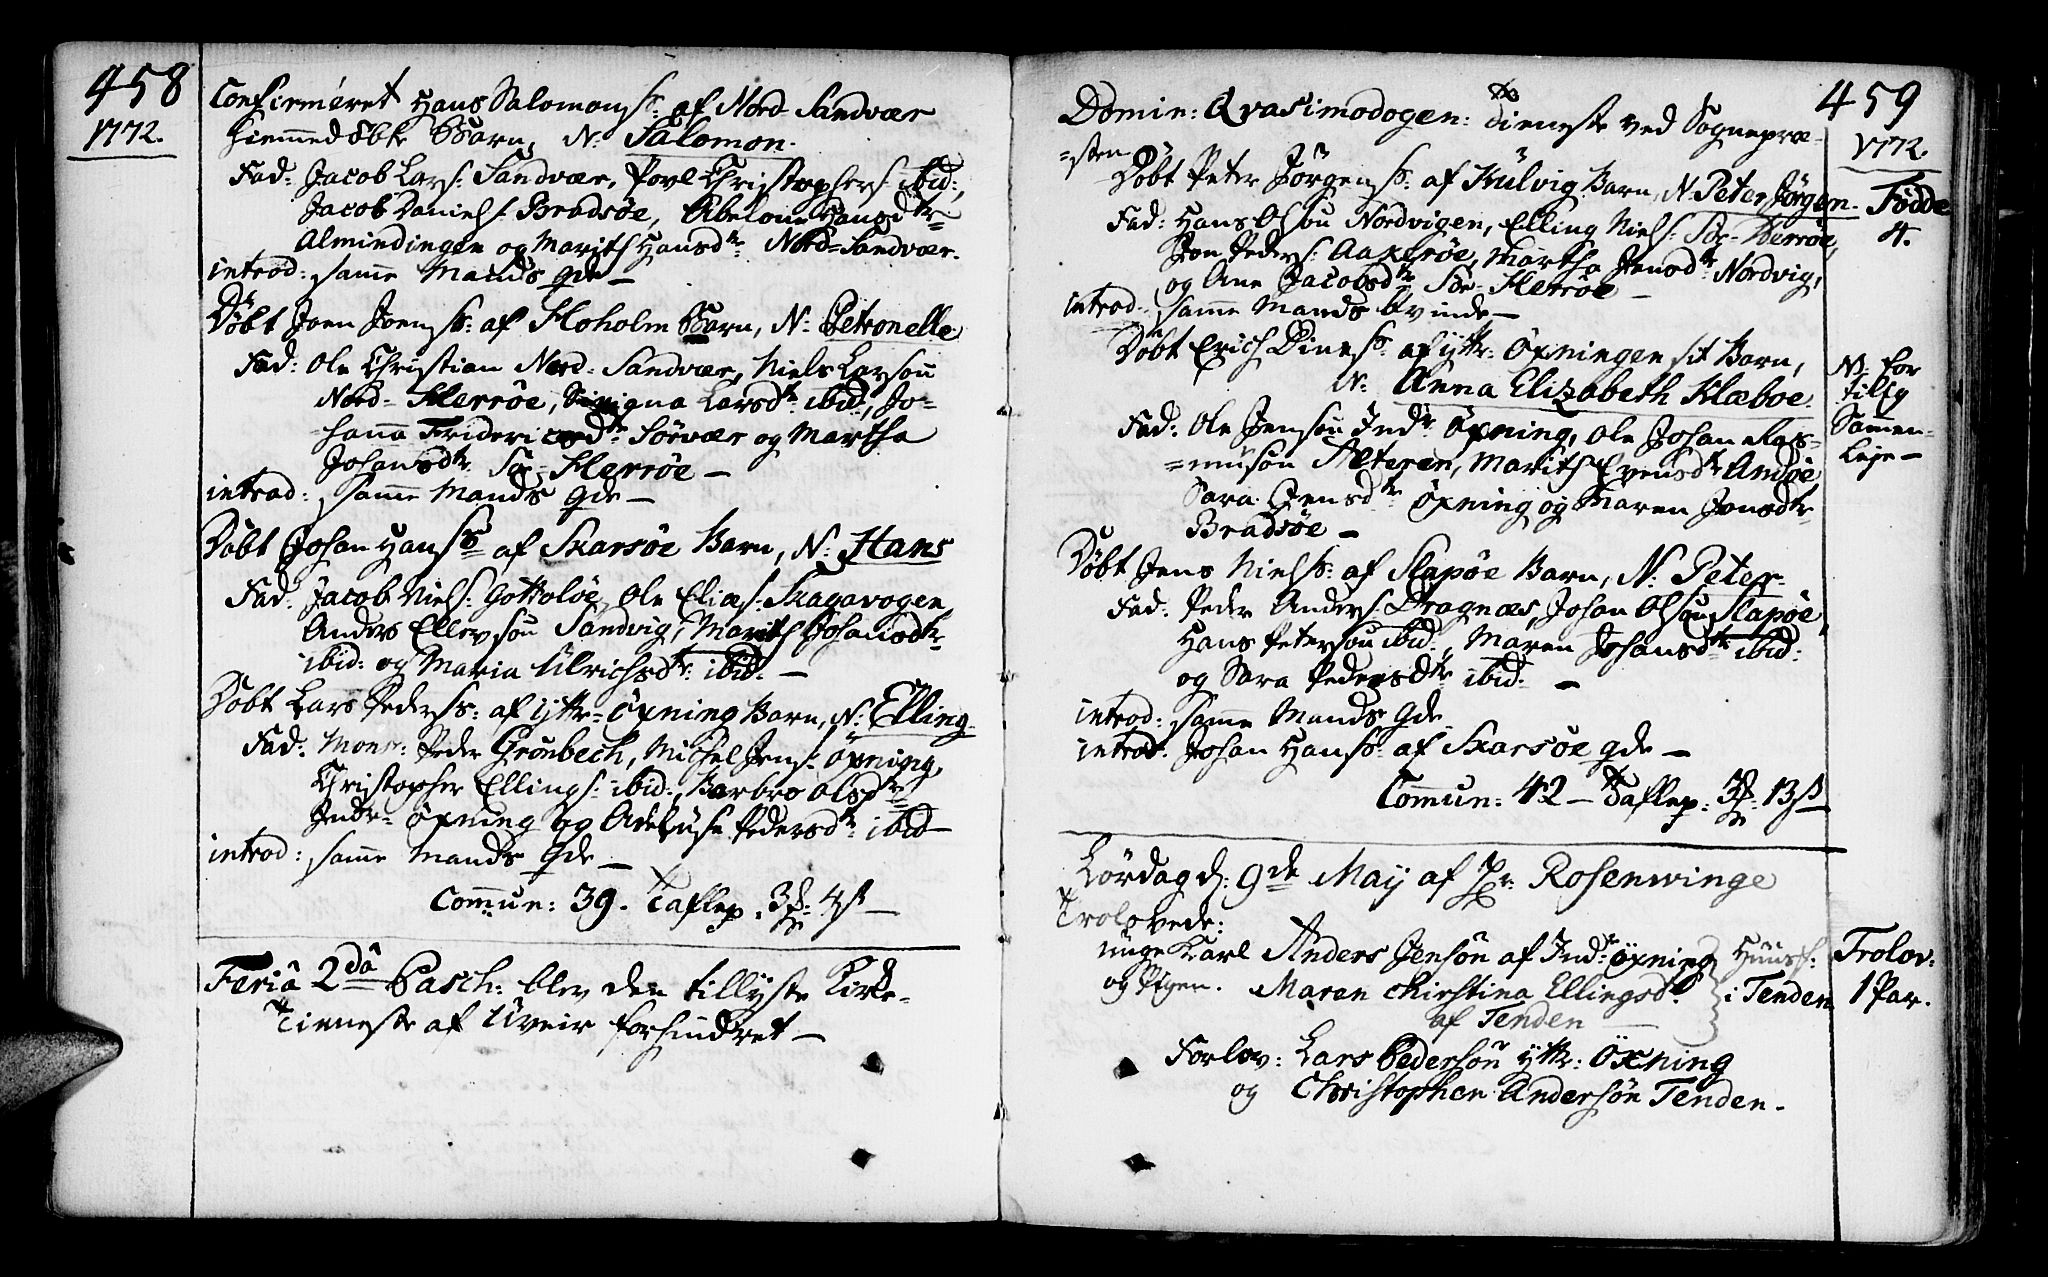 458
1772.
Confirmeret Hans Salomons: af Nord Sandvær
hiemmedøbte Barn, N: Salomon.
Fad: Jacob Lars: Sandvær, Povl Christophers: ibid:,
Jacob Daniels: Bradsøe, Abelone Hansdtr
Almindingen og Marith Hansdtr: Nord-Sandvær.
introd: samme Mands qde —
Døbt Joen Joens: af Floholm Barn, N: Petronelle
Fad: Ole Christian Nord-Sandvær, Niels Larsøn
Nord-Herrøe, Larsdtr: ibid:, Jo-
hanna Friderichsdtr: Sørvær og Martha
Johansdtr: Sør-Herrøe —
introd: samme Mands qde —
Døbt Johan Hans: af Skarsøe Barn, N: Hans
Fad: Jacob Niels: Gottoløe, Ole Elias: Skagavogen
Anders Ellevsøn Sandvig, Marith Johansdtr:
ibid: og Maria Ulrichsdtr: ibid: —
Døbt Lars Peders: af Yttr-Øxning Barn, N: Elling
Fad: Monsr: Peder Grønbech, Michel Jens: Øxning,
Christopher Ellings: ibid:, Barbro Olsdtr
Indr-Øxning og Adeluse Pedersdtr: ibid —
introd: samme Mands qde —
Commun: 39. Taflep: 3 4ß —
Feriâ 2dâ Pasch: blev den tillyste Kirke-
Tieneste af Uveir forhindret —
459
1772.
Domin: Qvasimodogen: Tieneste ved Sognepræ-
=sten
Døbt Peter Jørgens: af Kulvig Barn, N: Peter Jørgen.
Fødde
4.
Fad: Hans Olsøn Nordvigen, Elling Niels: Sør-Herrøe,
Jon Peders: Aakerøe, Martha Jensdtr: Nordvig,
og Ane Jacobsdtr Sør-Herrøe —
introd: samme Mands Qvinde —
Døbt Erich Dines: af Yttr: Øxningen sit Barn,
N: Anna Elizabeth Klæboe.
N: for
tilig
Samen-
Leje —
Fad: Ole Jensøn Indr: Øxning, Ole Johan Ras-
=musøn Sleteren, Marith Evensdtr Andøe
Sara Jensdtr Øxning og Maren Jonsdtr
Bradsøe —
Døbt Jens Niels: af Slapøe Barn, N: Peter
Fad: Peder Anders: Dragnæs, Johan Olsøn Slapøe,
Hans Petersøn ibid:, Maren Johansdtr ibid:
og Sara Pedersdtr ibid: —
introd: samme Mands qde
introd: Johan Hans: af Skarsøe qde —
Commun: 42 — Taflep: 3 13ß
Lørdag d: 9de Maij af Hr: Rosenwinge
Trolovede:
unge Karl Anders Jensøn af Indr Øxning
og Pigen. Maren Chirstina Ellingsdr
af Tenden —
Huusf:
i Tenden
Trolov:
1 Par.
Forlov: Lars Pedersøn Yttr: Øxning
og Christopher Andersøn Tenden.